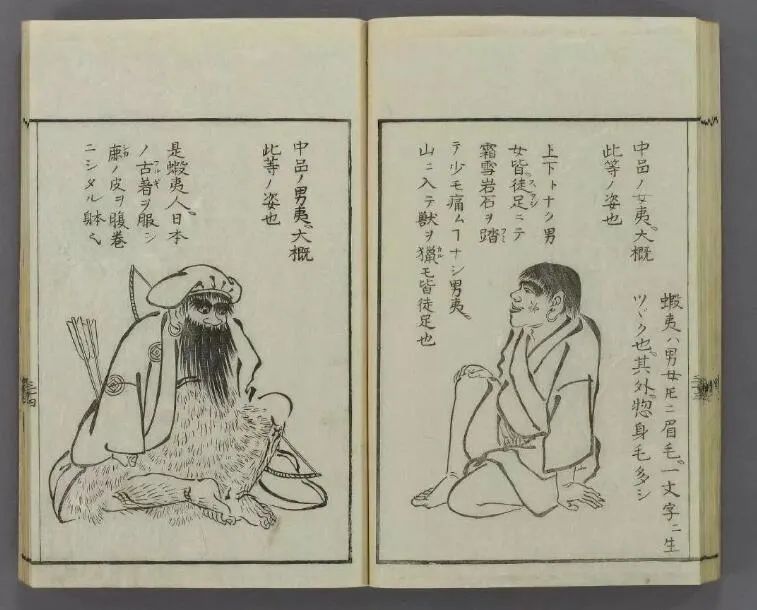 蝦夷ハ男女𪜈ニ眉毛。一文字ニ生
ツヾク也。其外。惣身毛多シ
中品ノ女夷。大概
此等ノ姿也
上下トナク男
女皆徒足ニテ
霜雪岩石ヲ踏
テ少モ痛ムヿナシ男夷。
山ニ入テ獣ヲ猟モ皆徒足也
中品ノ男夷。大概
此等ノ姿也
是蝦夷人。日本
ノ古著ヲ服シ
ノ皮ヲ腹巻
ニシタル躰也